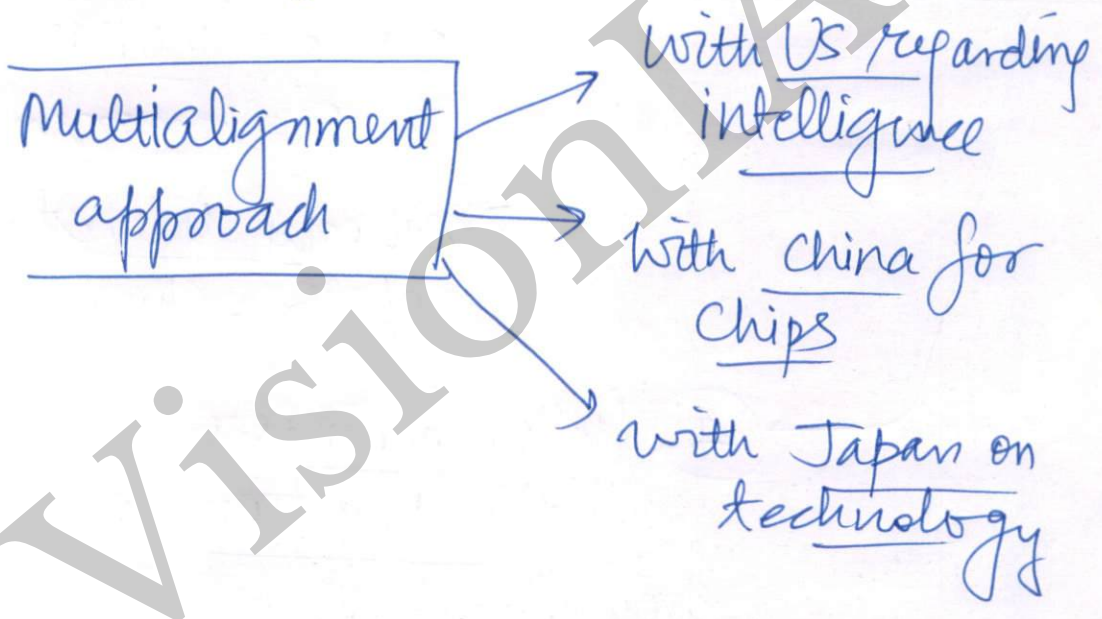 Multialignment
approach
with US regarding
intelligence
with China for
Chips
with Japan on
technology
VisionIA